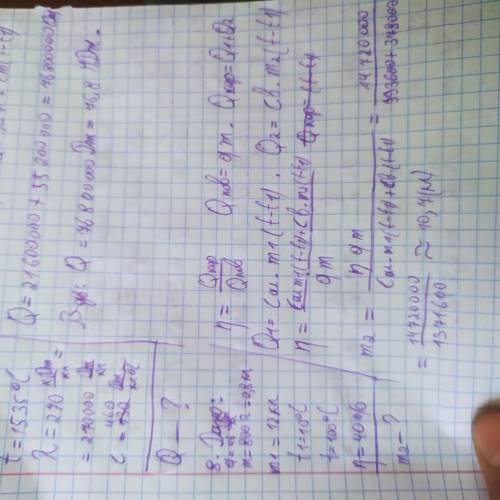 t = 1535°C
λ = 270 кДж/кг =
= 270000 Дж/кг
c = 460 Дж/кг·°C
Q — ?
Q = 21600000 + 55200000 = 76800000 Дж
Відп: Q = 76800000 Дж = 76,8 МДж.
8. Дано:
m = 800 г = 0,8 кг
m1 = 12 кг
t1 = 10°C
t = 100°C
η = 40%
m2 — ?
η = Qкор/Qпов Qпов = qm. Qкор = Q1+Q2
Q1 = Cал·m1(t-t1). Q2 = Cв·m2(t-t1)
η = Cал·m1(t-t1)·Cв·m2(t-t1)/qm
m2 = η qm/Cал·m1(t-t1)+Cв(t-t1) = 14720000/993600+378000
= 14720000/1371600 ≈ 10,7(кг)